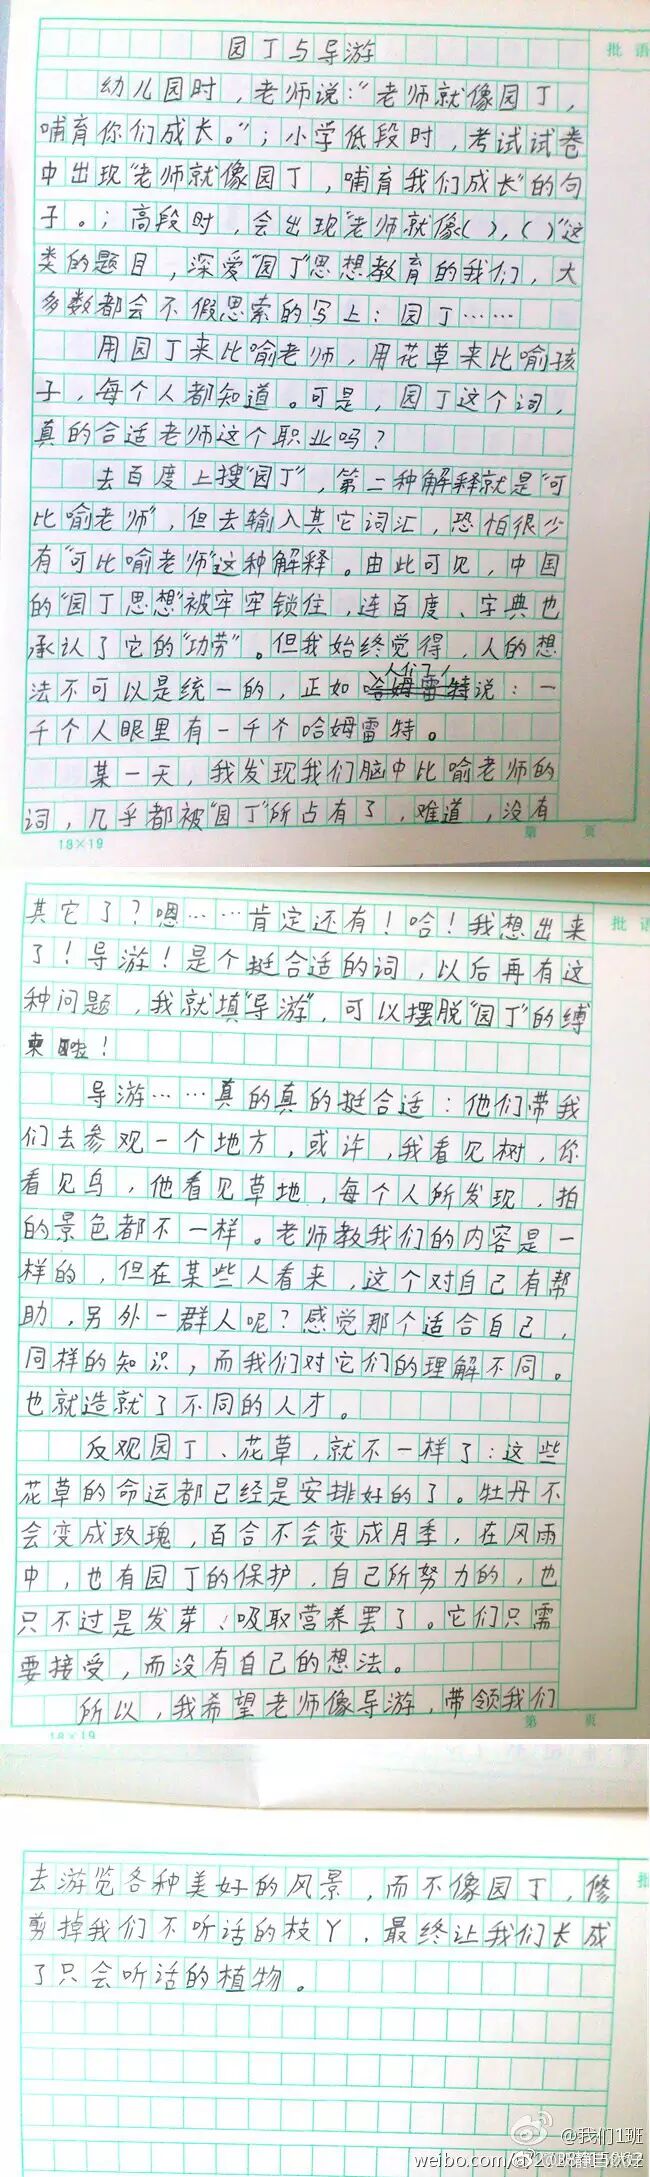 园丁与导游
批语
幼儿园时，老师说：“老师就像园丁，
哺育你们成长。”；小学低段时，考试试卷
中出现“老师就像园丁，哺育我们成长”的句
子。；高段时，会出现“老师就像（），（）”这
类的题目，深爱“园丁”思想教育的我们，大
多数都会不假思索的写上：园丁……
用园丁来比喻老师，用花草来比喻孩
子，每个人都知道。可是，园丁这个词，
真的合适老师这个职业吗？
去百度上搜“园丁”，第二种解释就是“可
比喻老师”，但去输入其它词汇，恐怕很少
有“可比喻老师”这种解释。由此可见，中国
的“园丁思想”被牢牢锁住，连百度、字典也
承认了它的“功劳”。但我始终觉得，人的想
法不可以是统一的，正如人们说：一
千个人眼里有一千个哈姆雷特。
某一天，我发现我们脑中比喻老师的
词，几乎都被“园丁”所占有了，难道，没有
18×19
第 页
其它了？嗯……肯定还有！哈！我想出来
批语
了！导游！是个挺合适的词，以后再有这
种问题，我就填“导游”，可以摆脱“园丁”的缚
束啦！
导游……真的真的挺合适：他们带我
们去参观一个地方，或许，我看见树，你
看见鸟，他看见草地，每个人所发现、拍
的景色都不一样。老师教我们的内容是一
样的，但在某些人看来，这个对自己有帮
助，另外一群人呢？感觉那个适合自己，
同样的知识，而我们对它们的理解不同。
也就造就了不同的人才。
反观园丁、花草，就不一样了：这些
花草的命运都已经是安排好的了。牡丹不
会变成玫瑰，百合不会变成月季，在风雨
中，也有园丁的保护，自己所努力的，也
只不过是发芽、吸取营养罢了。它们只需
要接受，而没有自己的想法。
所以，我希望老师像导游，带领我们
18×19
第 页
去游览各种美好的风景，而不像园丁，修
批
剪掉我们不听话的枝丫，最终让我们长成
了只会听话的植物。
@我们1班